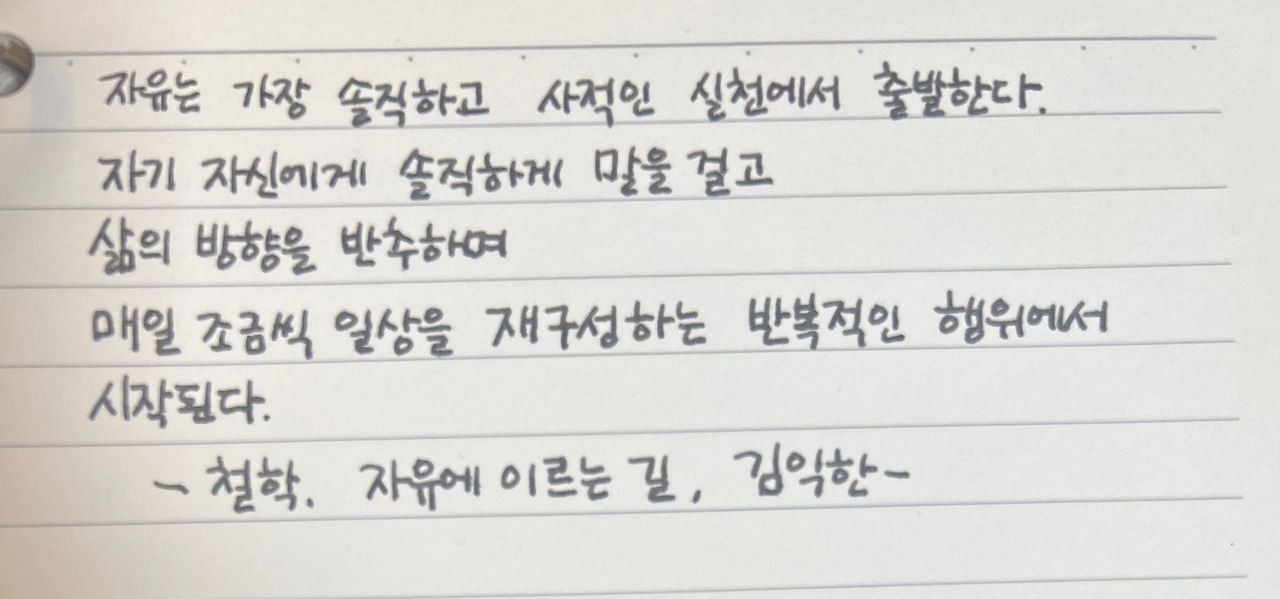 자유는 가장 솔직하고 사적인 실천에서 출발한다.
자기 자신에게 솔직하게 말을 걸고
삶의 방향을 반추하며
매일 조금씩 일상을 재구성하는 반복적인 행위에서
시작된다.
~ 철학. 자유에 이르는 길, 김익한~